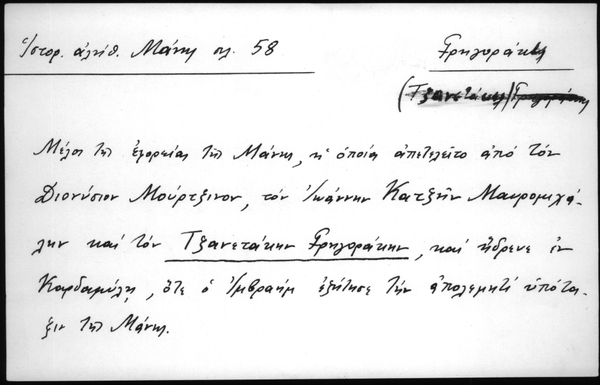 Ἱστορ. ἀλήθ. Μάνης σελ. 58
Γρηγοράκης
(Τζανετάκης) Γρηγοράκης
Μέλος τῆς ἐφορείας τῆς Μάνης, ἡ ὁποία ἀπετελεῖτο ἀπό τόν
Διονύσιον Μούρτζινον, τόν Ἰωάννην Κατζῆν Μαυρομιχά-
λην καί τόν Τζανετάκην Γρηγοράκην, καί ἥδρευε ἐν
Καρδαμύλῃ, ὅτε ὁ Ἰμβραήμ ἐζήτησε τήν ἀπολεμητί ὑπότα-
ξιν τῆς Μάνης.